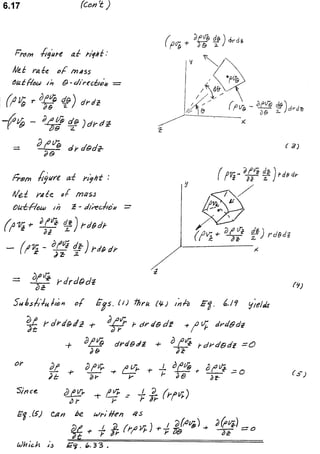 6.17 (Con't)
(ρv_θ + ∂ρv_θ/∂θ dθ/2) dr dz
From figure at right:
Net rate of mass
outflow in θ-direction =
(ρv_θ + ∂ρv_θ/∂θ dθ/2) dr dz
-(ρv_θ - ∂ρv_θ/∂θ dθ/2) dr dz
(ρv_θ - ∂ρv_θ/∂θ dθ/2) dr dz
= ∂ρv_θ/∂θ dr dθ dz
(3)
From figure at right:
(ρv_z - ∂ρv_z/∂z dz/2) r dθ dr
Net rate of mass
outflow in z-direction =
(ρv_z + ∂ρv_z/∂z dz/2) r dθ dr
- (ρv_z - ∂ρv_z/∂z dz/2) r dθ dr
(ρv_z + ∂ρv_z/∂z dz/2) r dθ dz
= ∂ρv_z/∂z r dr dθ dz
(4)
Substitution of Eqs. (1) thru (4) into Eq. 6.19 yields
∂ρ/∂t r dr dθ dz + ∂ρv_r/∂r r dr dθ dz + ρv_r dr dθ dz
+ ∂ρv_θ/∂θ dr dθ dz + ∂ρv_z/∂z r dr dθ dz = 0
or ∂ρ/∂t + ∂ρv_r/∂r + ρv_r/r + 1/r ∂ρv_θ/∂θ + ∂ρv_z/∂z = 0 (5)
Since ∂ρv_r/∂r + ρv_r/r = 1/r ∂/∂r (rρv_r)
Eq. (5) can be written as
∂ρ/∂t + 1/r ∂/∂r (rρv_r) + 1/r ∂(ρv_θ)/∂θ + ∂(ρv_z)/∂z = 0
which is Eq. 6.33.